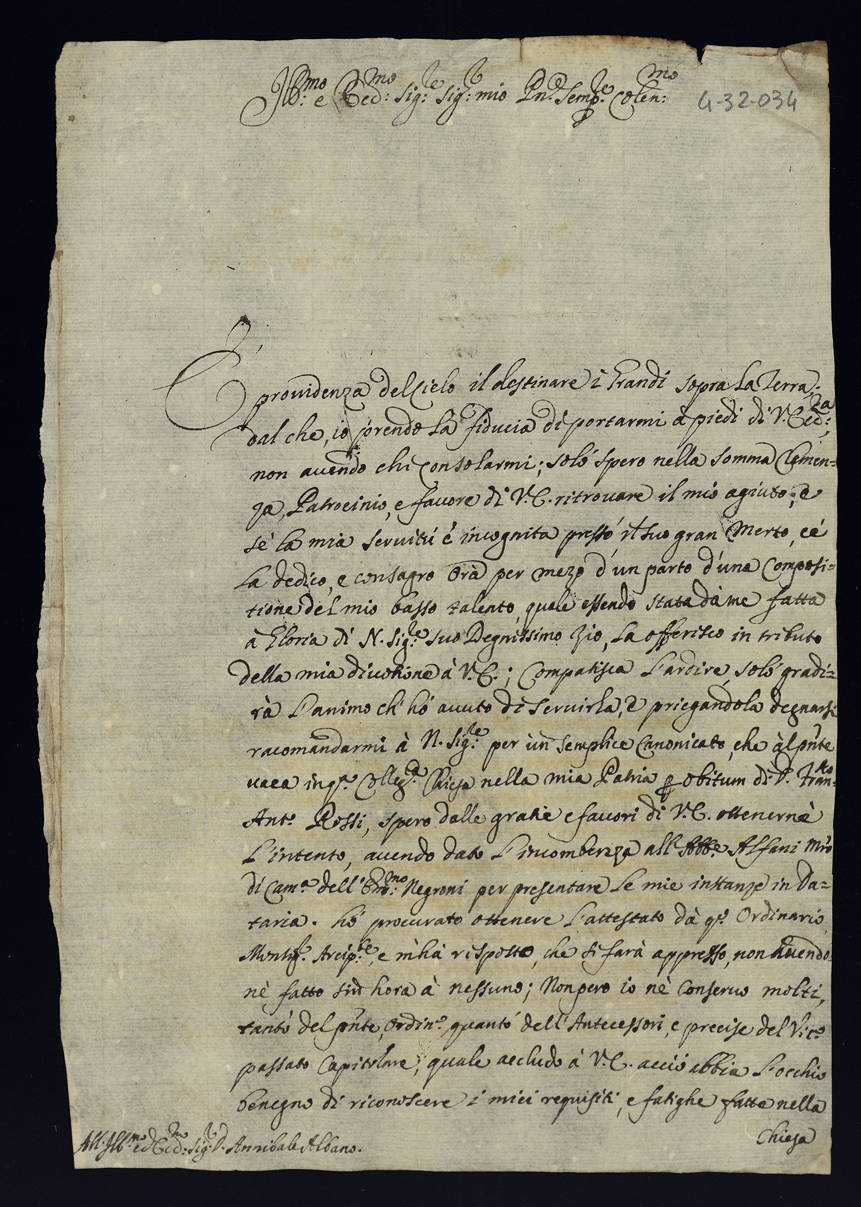 Ill:mo e Ecc:mo Sig:re Sig:r mio Pn:e Semp:e Colen:mo
4-32-034
È providenza del Cielo il destinare i Grandi sopra la Terra;
dal che, io prendo la fiducia di portarmi a piedi di V. Ecc:za,
non avendo chi consolarmi; solo spero nella somma Clemen=
za, Patrocinio, e favore di V.E. ritrovare il mio agiuto; e
sè la mia servitù è incognita presso il suo gran Merto, ce
la dedico, e consagro orà per mezo d'un parto d'una Composi=
tione del mio basso talento, quale essendo stata dà me fatta
à Gloria di N. Sig:re suo Degnissimo Zio, la offerisco in tributo
della mia divotione à V.E.; Compatisca l'ardire, solo gradi=
rà l'animo ch'hò avuto di servirla, e priegandola degnarsi
racomandarmi à N. Sig:re per un semplice Canonicato, che àl pñte
vaca in q:a Colleg:ta Chiesa nella mia Patria p obitum di D. Fran:co
Ant:o Rossi, spero dalle gratie e favori di V.E. ottenerne
l'intento, avendo dato l'incombenza all'Abb:e Alfani Mro
di Cam:a dell'Em:mo Negroni per presentare le mie instanze in Da=
taria. hò procurato ottenere l'attestato dà q:o Ordinario
Arcip:te, e m'hà risposto, che si farà appresso, non avendo=
nè fatto sin hora à nessuno; Non però io nè conservo molti,
tantò del pñte, Ordin:o, quantò dell'Antecessori, e precise del Vic:o
passato Capitolare; quale accludo à V.E. acciò abbia l'occhio
benegno di riconoscere i miei requisiti, e fatighe fatte nella
Chiesa
All'Ill:mo ed Ecc:mo Sig:r D. Annibale Albano.